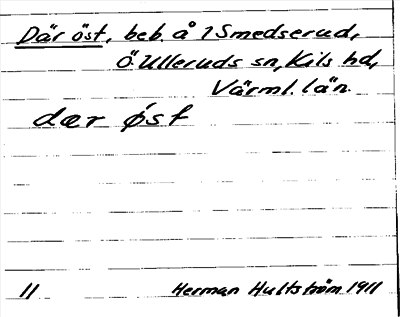 Där öst, beb. å 1 Smedserud,
Ö. Ulleruds sn, Kils hd,
Värml. län.
dær øst
11 Herman Hultström 1911